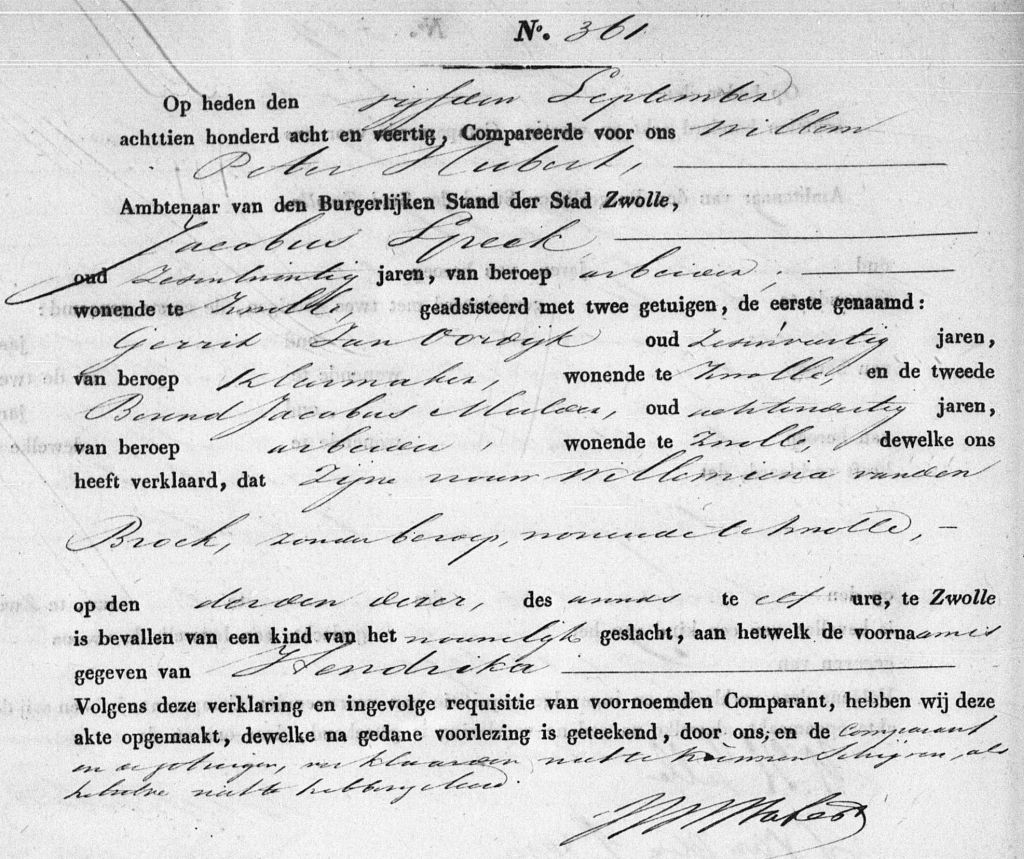 No. 361
Op heden den vyfden September
achttien honderd acht en veertig, Compareerde voor ons Willem
Peter Hubert,
Ambtenaar van den Burgerlijken Stand der Stad Zwolle,
Jacobus Spreek
oud zesentwintig jaren, van beroep arbeider
wonende te Zwolle, geadsisteerd met twee getuigen, de eerste genaamd:
Gerrit van Oordyk oud zesenveertig jaren,
van beroep kleermaker, wonende te Zwolle, en de tweede
Berend Jacobus Mulder, oud achtendertig jaren,
van beroep arbeider, wonende te Zwolle, dewelke ons
heeft verklaard, dat Zyne vrouw Willemiena van den
Broek, zonder beroep, wonende te Zwolle,
op den derden dezer, des avonds te elf ure, te Zwolle
is bevallen van een kind van het vrouwelijk geslacht, aan hetwelk de voornaam is
gegeven van Hendrika
Volgens deze verklaring en ingevolge requisitie van voornoemden Comparant, hebben wij deze
akte opgemaakt, dewelke na gedane voorlezing is geteekend, door ons, en de comparant
en de getuigen, verklaarden niet te kunnen schryven, als
hetzelve niet te hebbengeleerd